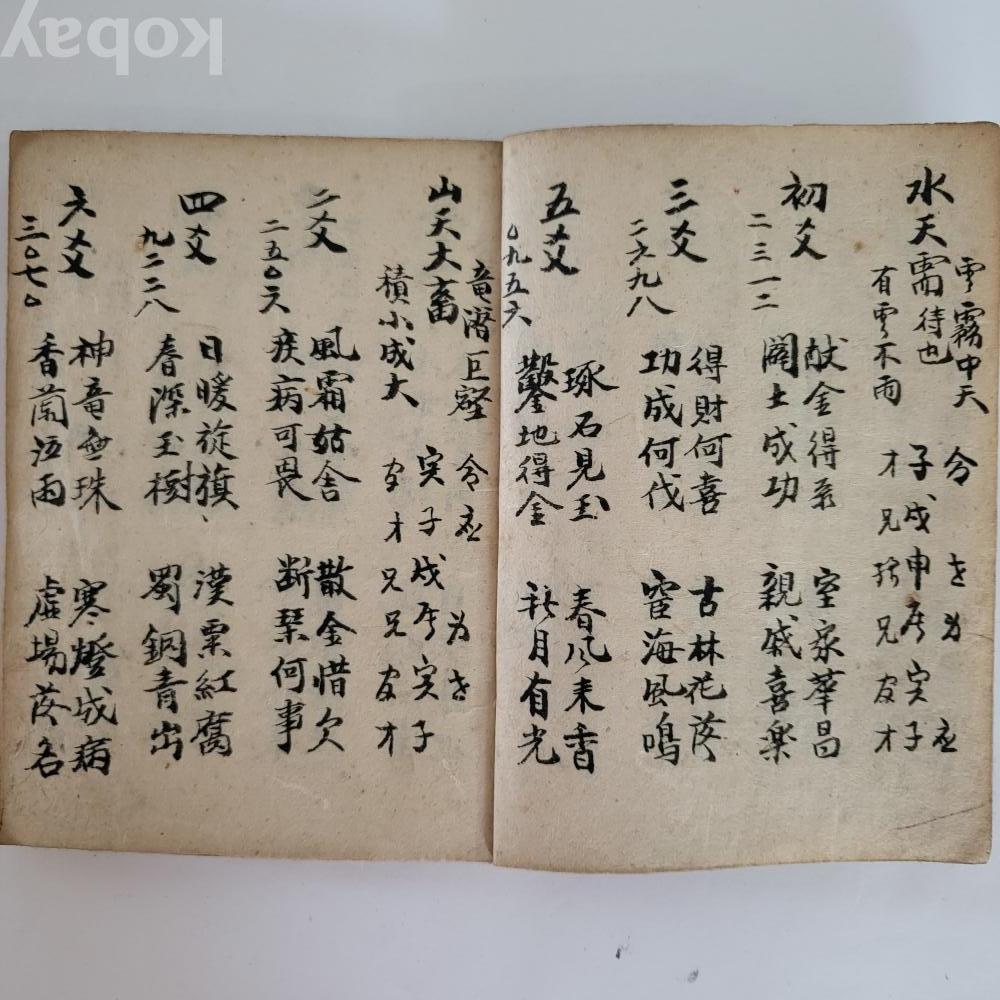 水天需待也
雲霧中天
有雲不雨
令 世 為 应
子 戌 申 辰 寅 子
才 兄 孫 兄 官 才
初爻
二三一二
献金得官 室家華昌
闢土成功 親戚喜樂
三爻
二六九八
得財何喜 古林花落
功成何伐 窅海風鳴
五爻
0九五六
琢石見玉 春風来香
鑿地得金 秋月有光
山天大畜
竜潛巨壑
積小成大
令 应 為 世
寅 子 戌 辰 寅 子
官 才 兄 兄 官 才
二爻
二五0六
風霜姑舍 散金惜欠
疾病可畏 断琴何事
四爻
九二二八
日暖旋旗 漢粟紅腐
春深玉樹 蜀銅青出
六爻
三0七0
神竜無珠 寒燈成病
香蘭泣雨 虛場落名
kobay